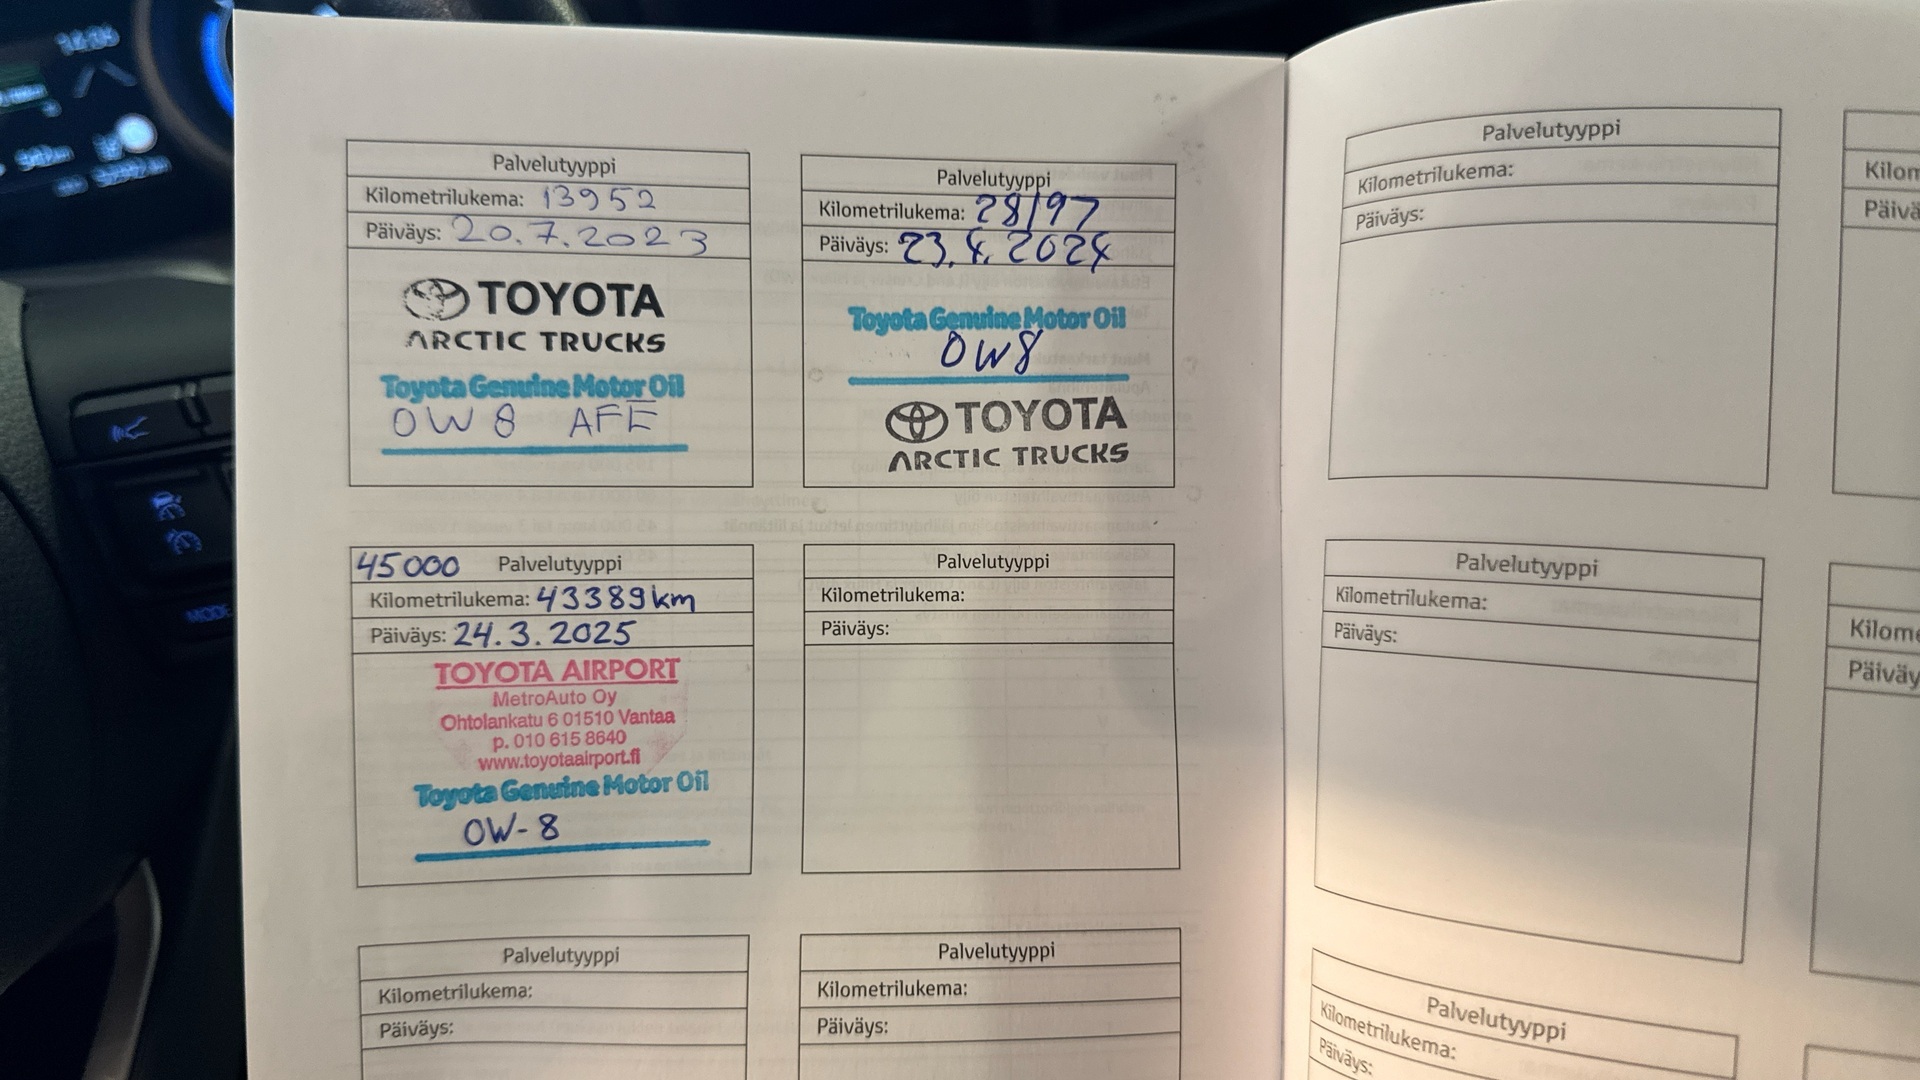 Palvelutyyppi
Kilometrilukema: 13952
Päiväys: 20.7.2023
TOYOTA
ARCTIC TRUCKS
Toyota Genuine Motor Oil
0W8 AFE
Palvelutyyppi
Kilometrilukema: 28197
Päiväys: 23.4.2024
Toyota Genuine Motor Oil
0W8
TOYOTA
ARCTIC TRUCKS
45000 Palvelutyyppi
Kilometrilukema: 43389km
Päiväys: 24.3.2025
TOYOTA AIRPORT
MetroAuto Oy
Ohtolankatu 6 01510 Vantaa
p. 010 615 8640
www.toyotaairport.fi
Toyota Genuine Motor Oil
0W-8
Palvelutyyppi
Kilometrilukema:
Päiväys:
Palvelutyyppi
Kilometrilukema:
Päiväys:
Palvelutyyppi
Kilometrilukema:
Päiväys:
Palvelutyyppi
Kilometrilukema:
Päiväys:
Palvelutyyppi
Kilometrilukema:
Päiväys:
Palvelutyyppi
Kilometrilukema:
Päiväys:
MODE